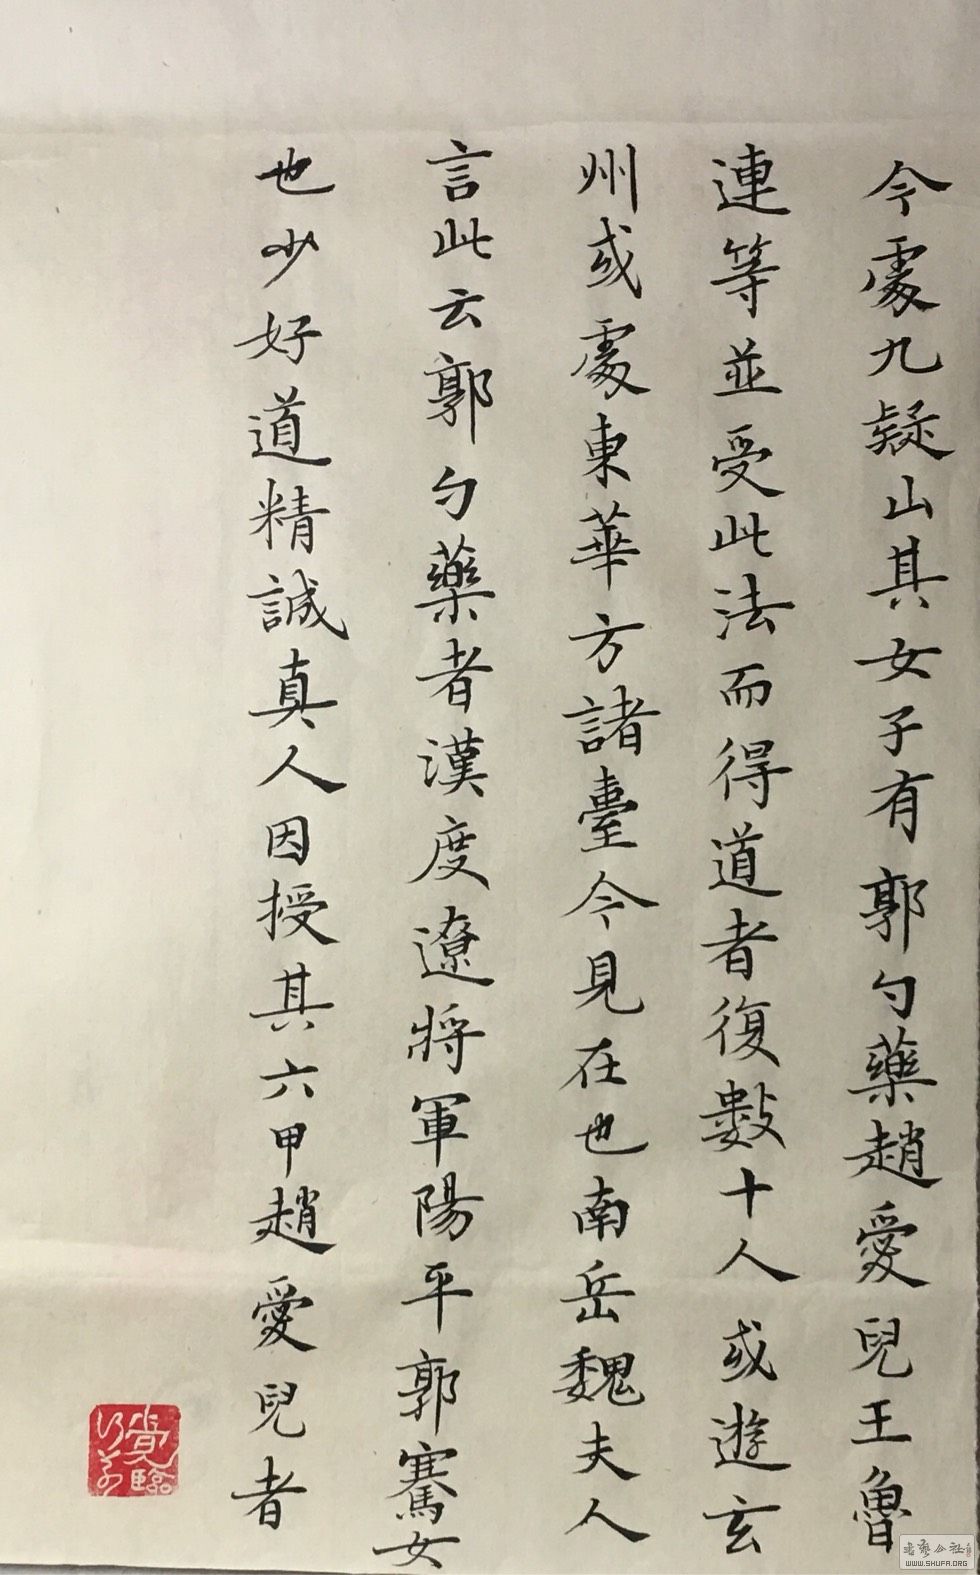 今處九疑山其女子有郭勺藥趙愛兒王魯
連等並受此法而得道者復數十人或遊玄
州或處東華方諸臺今見在也南岳魏夫人
言此云郭勺藥者漢度遼將軍陽平郭騫女
也少好道精誠真人因授其六甲趙愛兒者
書學公社
WWW.SHUFA.ORG